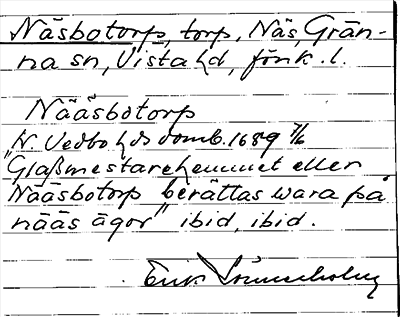 Näsbotorp, torp, Näs, Grän-
na sn, Vista hd, jönk. l.
Nääsbotorp
N. Vedbo hds domb. 1689 7/6
"Glaßmestarehemmet eller
Nääsbotorp berättas wara på
nääs ägor" ibid, ibid.
Erik